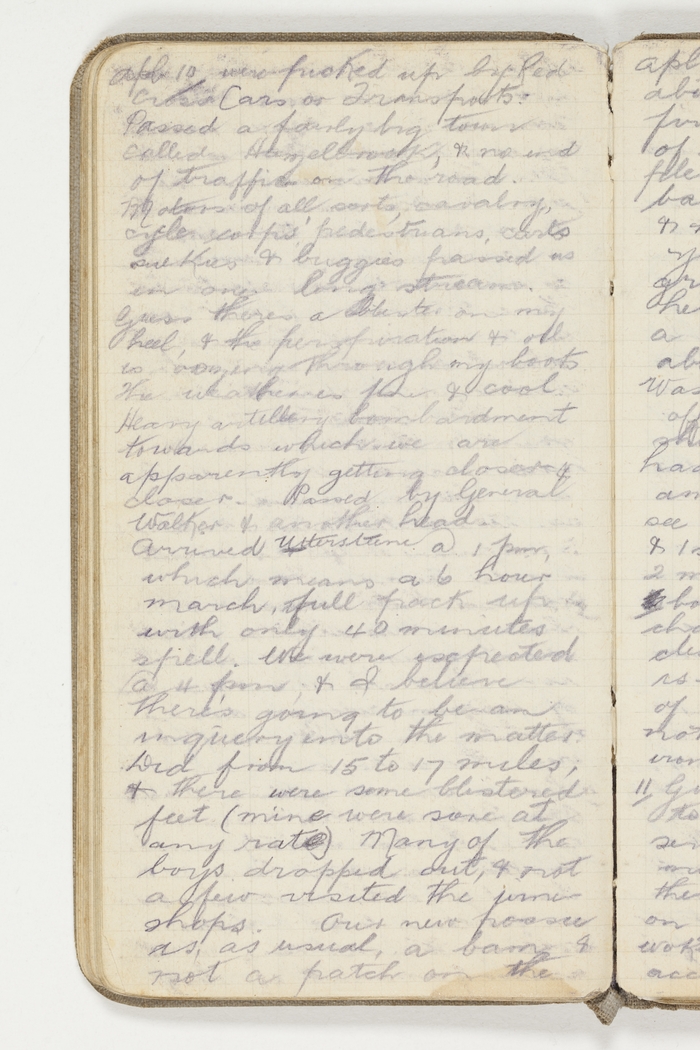 Apl 10 were picked up by Red
Cross Cars or Transports.
Passed a fairly big town
called & no end
of traffic on the road.
Motors of all sorts, cavalry,
cycle corps, pedestrians, carts
sulkies & buggies passed us
in one long stream.
Guess theres a blister on my
heel, & the perspiration & oil
is oozing through my boots
The weather is fine & cool.
Heavy artillery bombardment
towards which we are
apparently getting closer &
closer. Passed by General
Walker & another head.
Arrived Utterstene a 1 pm,
which means a 6 hour
march, full pack up,
with only 40 minutes
spell. We were expected
a 4 pm, & I believe
there's going to be an
inquiery into the matter.
Did from 15 to 17 miles,
& there were some blistered
feet (mine were sore at
any rate) Many of the
boys dropped out, & not
a few visited the wine
shops. Our new possie
is, as usual, a barn &
not a patch on the
apl
abo
of
ba
a
Was
had
am
see
& 1
2 m
of
not
11 Gu
the
on
acc